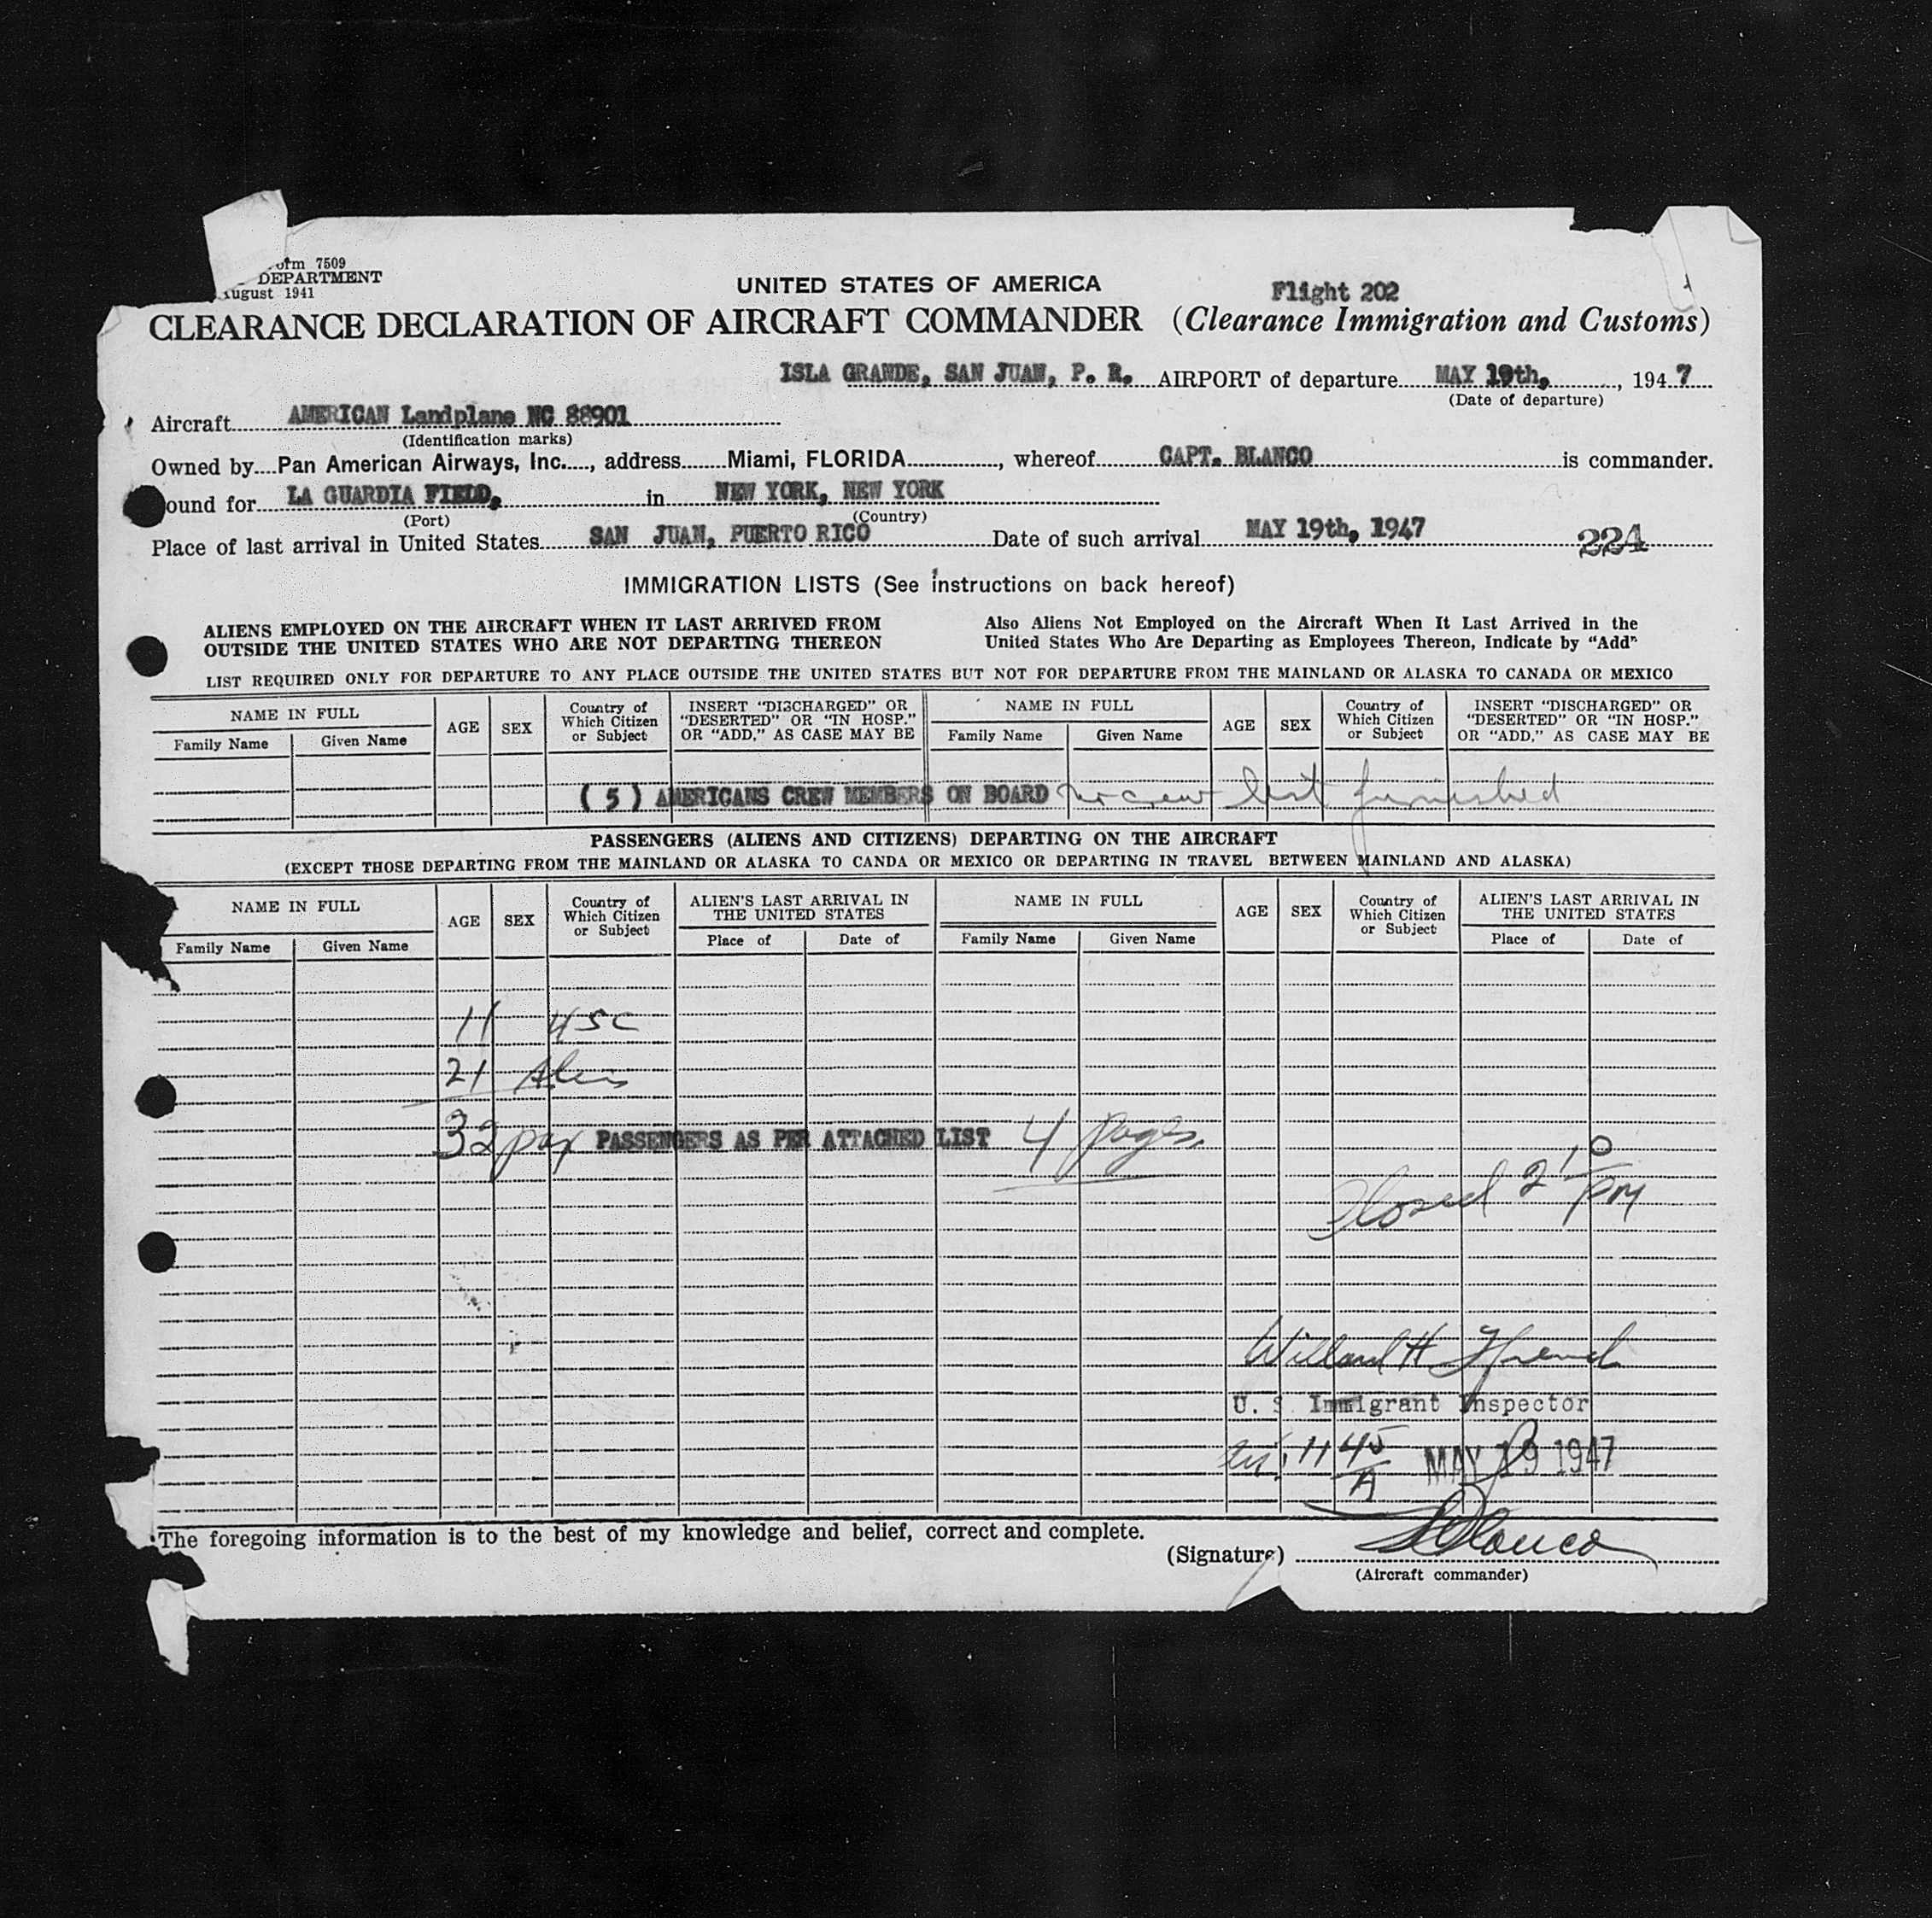 orm 7509
DEPARTMENT
ugust 1941
UNITED STATES OF AMERICA
Flight 202
CLEARANCE DECLARATION OF AIRCRAFT COMMANDER (Clearance Immigration and Customs)
ISLA GRANDE, SAN JUAN, P. R. AIRPORT of departure MAY 19th, , 1947
(Date of departure)
Aircraft AMERICAN Landplane NC 88901
(Identification marks)
Owned by Pan American Airways, Inc. , address Miami, FLORIDA , whereof CAPT. BLANCO is commander.
ound for LA GUARDIA FIELD, in NEW YORK, NEW YORK
(Port) (Country)
Place of last arrival in United States SAN JUAN, PUERTO RICO Date of such arrival MAY 19th, 1947 224
IMMIGRATION LISTS (See instructions on back hereof)
ALIENS EMPLOYED ON THE AIRCRAFT WHEN IT LAST ARRIVED FROM
OUTSIDE THE UNITED STATES WHO ARE NOT DEPARTING THEREON
Also Aliens Not Employed on the Aircraft When It Last Arrived in the
United States Who Are Departing as Employees Thereon, Indicate by "Add"
LIST REQUIRED ONLY FOR DEPARTURE TO ANY PLACE OUTSIDE THE UNITED STATES BUT NOT FOR DEPARTURE FROM THE MAINLAND OR ALASKA TO CANADA OR MEXICO
NAME IN FULL
Family Name Given Name
AGE
SEX
Country of
Which Citizen
or Subject
INSERT "DISCHARGED" OR
"DESERTED" OR "IN HOSP."
OR "ADD," AS CASE MAY BE
NAME IN FULL
Family Name Given Name
AGE
SEX
Country of
Which Citizen
or Subject
INSERT "DISCHARGED" OR
"DESERTED" OR "IN HOSP."
OR "ADD," AS CASE MAY BE
( 5 ) AMERICANS CREW MEMBERS ON BOARD no crew list furnished
PASSENGERS (ALIENS AND CITIZENS) DEPARTING ON THE AIRCRAFT
(EXCEPT THOSE DEPARTING FROM THE MAINLAND OR ALASKA TO CANDA OR MEXICO OR DEPARTING IN TRAVEL BETWEEN MAINLAND AND ALASKA)
NAME IN FULL
Family Name Given Name
AGE
SEX
Country of
Which Citizen
or Subject
ALIEN'S LAST ARRIVAL IN
THE UNITED STATES
Place of Date of
NAME IN FULL
Family Name Given Name
AGE
SEX
Country of
Which Citizen
or Subject
ALIEN'S LAST ARRIVAL IN
THE UNITED STATES
Place of Date of
11 USC
21 Alien
32 pax PASSENGERS AS PER ATTACHED LIST 4 pages
Closed 2 10 PM
Willard H French
U. S Immigrant Inspector
11 45 A MAY 19 1947
The foregoing information is to the best of my knowledge and belief, correct and complete.
(Signature) Blanco
(Aircraft commander)